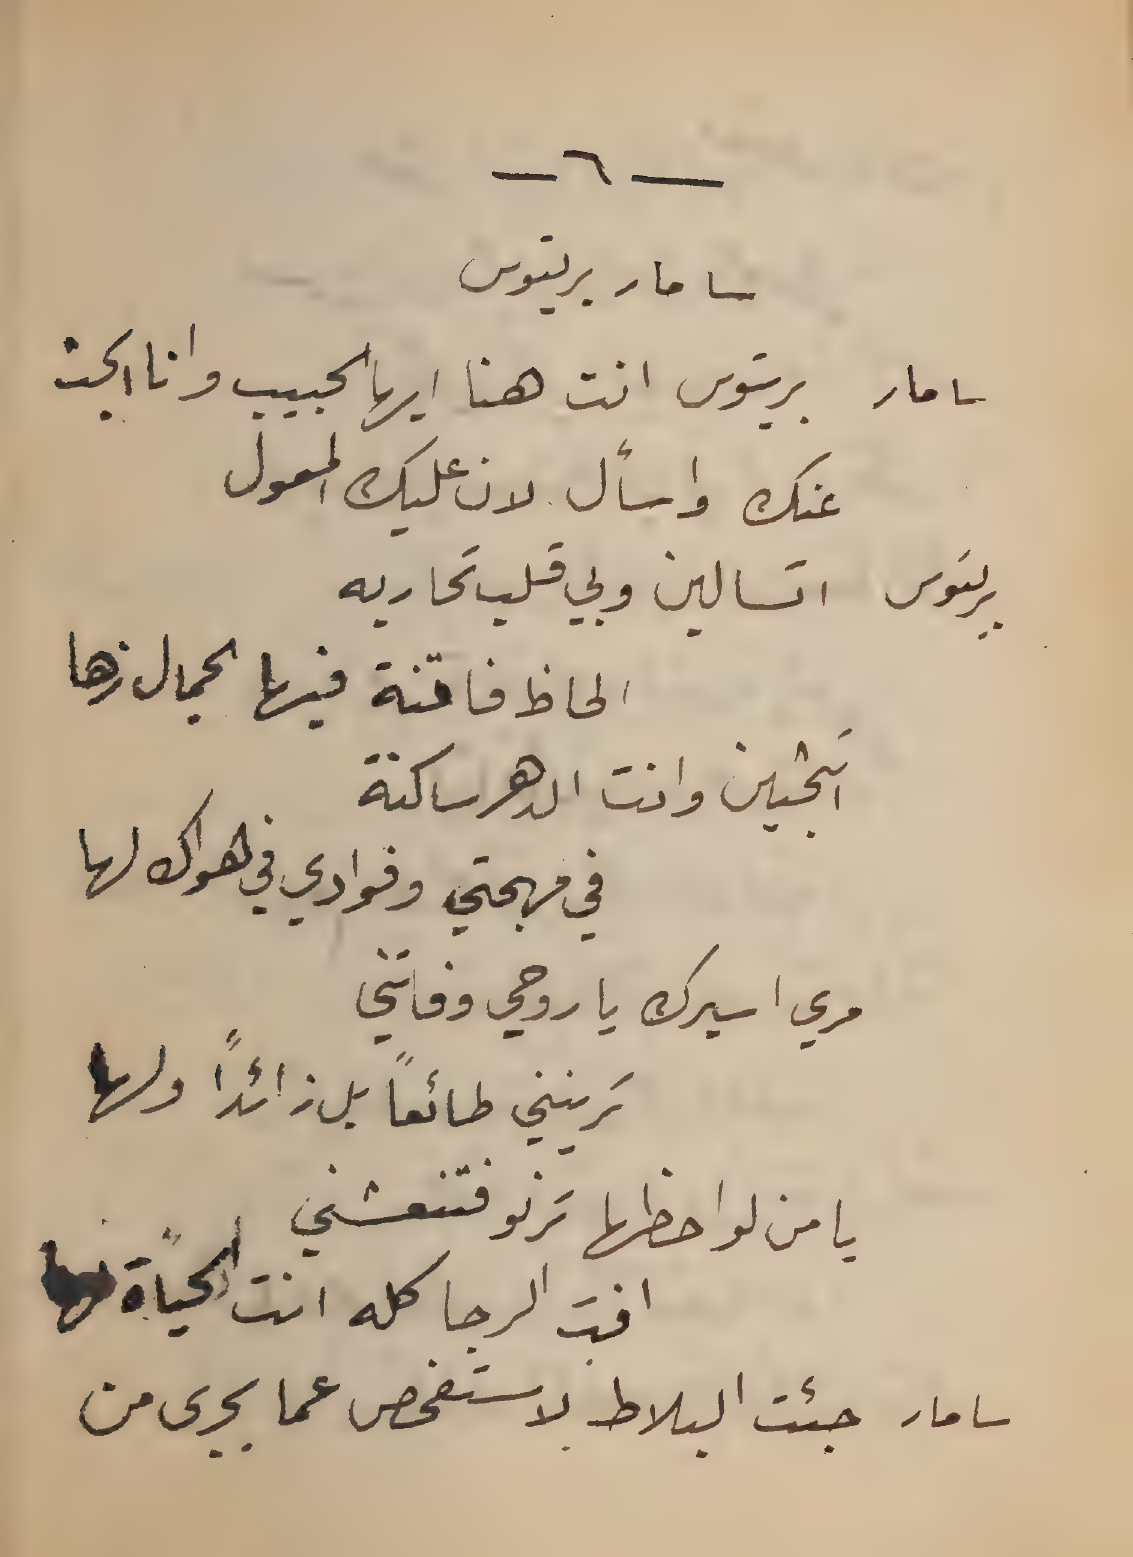 — ٦ —
سامار بريتوس
سامار بريتوس انت هنا ايها الحبيب وانا ابحث
عنك واسأل لان عليك المعول
بريتوس اتسالين ولي قلب تحاربه
الحاظ فاتنة فيها الجمال زها
اتبحثين وانت الدهر ساكنة
في مهجتي وفوادي في هواك لها
مري اسيرك يا روحي وفاتني
تريننيي طائعاً بل زائداً ولها
يا من لواحظها ترنو فتنعشني
انت الرجا كله انت الحياة لها
سامار جئت البلاط لاستفحص عما يجرى من